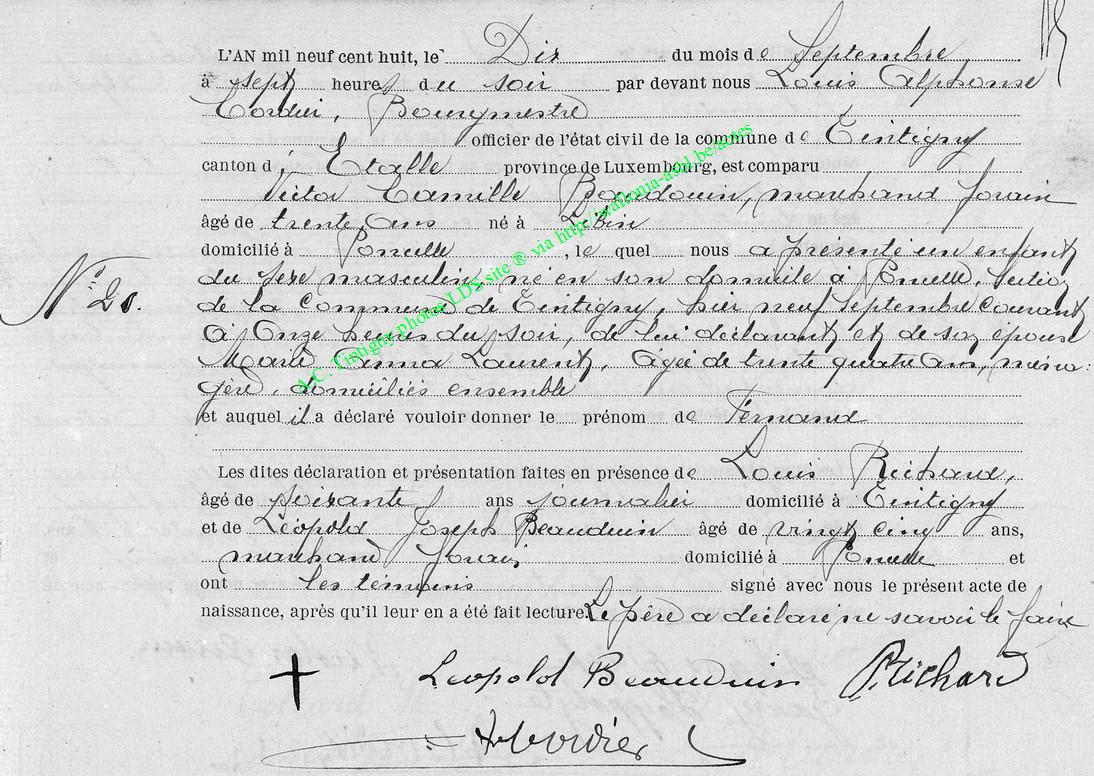 L'AN mil neuf cent huit, le Dix du mois de Septembre
à sept heures du soir par devant nous Louis Alphonse
Cordier, Bourgmestre
officier de l'état civil de la commune de Tintigny
canton d' Etalle province de Luxembourg, est comparu
Victor Camille Beauduin, marchand forain
âgé de trente ans né à Libin
domicilié à Poncelle, le quel nous a présenté un enfant
du sexe masculin, né en son domicile à Poncelle, section
N° 21.
de la commune de Tintigny, hier neuf septembre courant
à Onze heures du soir, de lui déclarant et de son épouse
Marie Anna Laurent, âgée de trente quatre ans, ména-
gère, domiciliés ensemble
et auquel il a déclaré vouloir donner le prénom de Fernand
Les dites déclaration et présentation faites en présence de Louis Richard,
âgé de soixante ans journalier domicilié à Tintigny
et de Léopold Joseph Beauduin âgé de vingt cinq ans,
marchand forain domicilié à Poncelle et
ont les témoins signé avec nous le présent acte de
naissance, après qu'il leur en a été fait lecture. Le père a déclaré ne savoir le faire
Leopold Beauduin Richard
Cordier
A.C. Tintigny photos LDS site ® via http://wallonia-asbl.be/actes